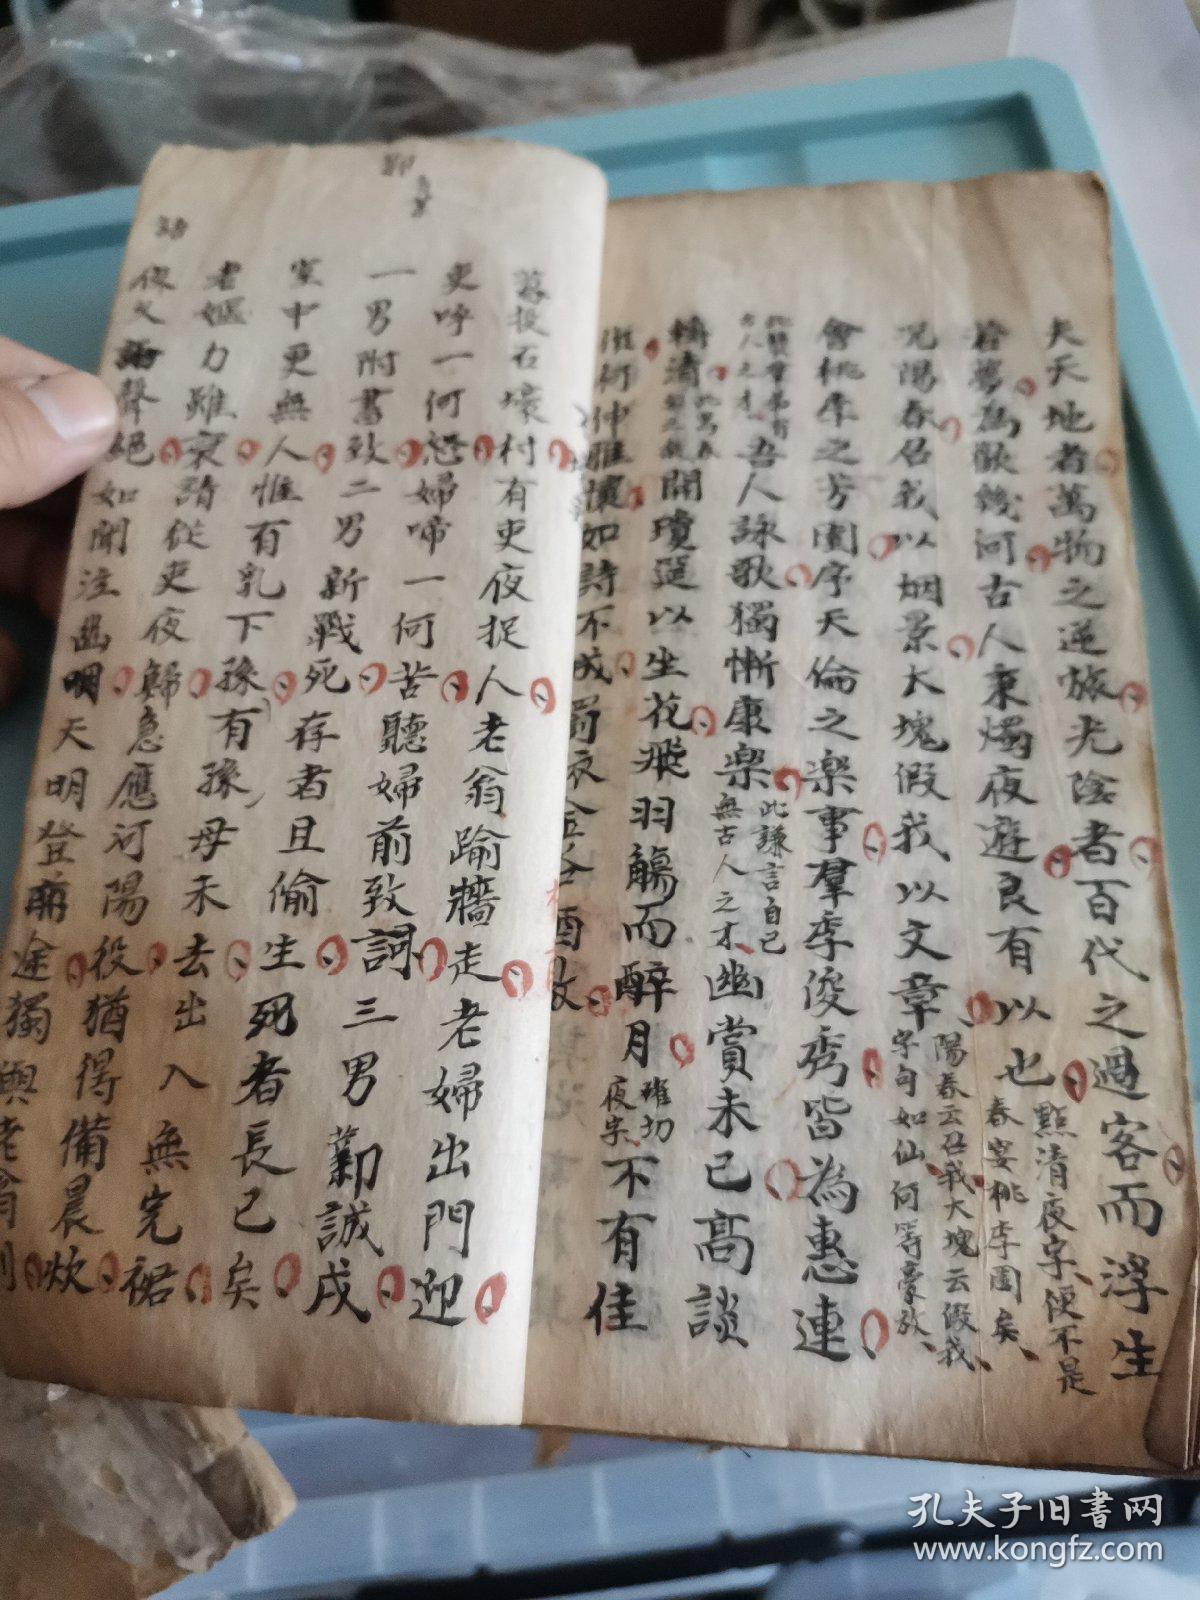 夫天地者萬物之逆旅光陰者百代之過客而浮生
若夢為歡幾何古人秉燭夜遊良有以也點清夜字便不是
春宴桃李園矣
況陽春召我以烟景大塊假我以文章陽春云召我大塊云假我
字句如仙何等豪放
會桃李之芳園序天倫之樂事羣季俊秀皆為惠連
古人之才吾人詠歌獨慚康樂此謙言自己
無古人之才幽賞未已高談
轉清開瓊筵以坐花飛羽觴而醉月
夜字不有佳
雅懷如詩不成罰依金谷酒
暮投石壕村有吏夜捉人老翁踰牆走老婦出門迎
吏呼一何怒婦啼一何苦聽婦前致詞三男鄴誠戍
一男附書致二男新戰死存者且偷生死者長已矣
室中更無人惟有乳下孫有孫母未去出入無完裙
老嫗力雖衰請從吏夜歸急應河陽役猶得備晨炊
夜久語聲絕如聞泣幽咽天明登前途獨與老翁別
孔夫子旧書网
www.kongfz.com